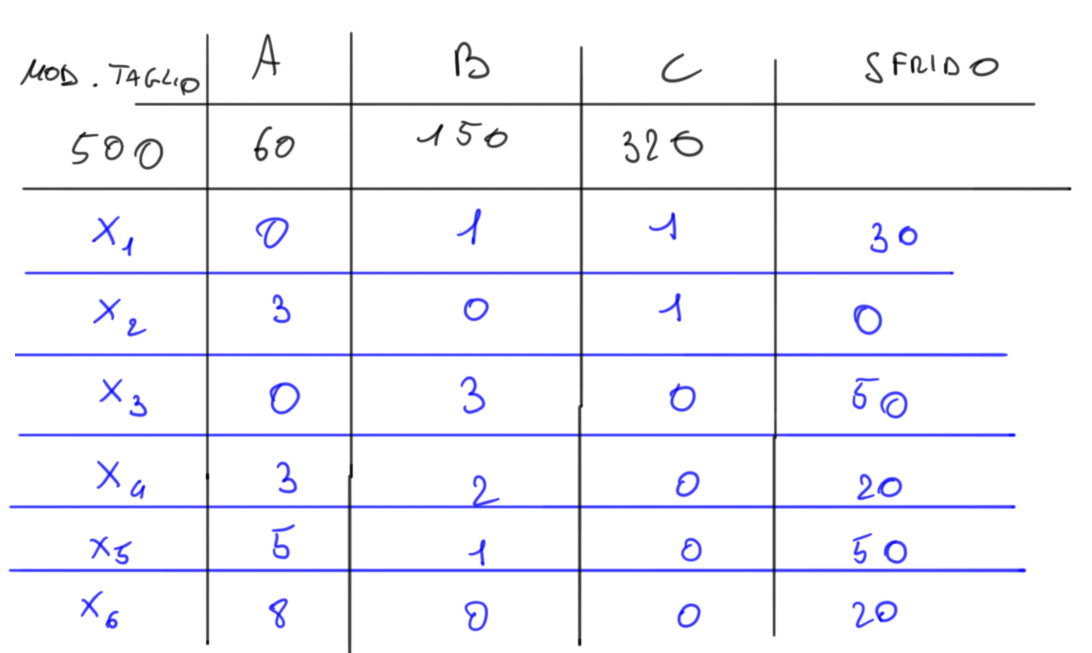 MOD. TAGLIO A B C SFRIDO
500 60 150 320
X1 0 1 1 30
X2 3 0 1 0
X3 0 3 0 50
X4 3 2 0 20
X5 5 1 0 50
X6 8 0 0 20